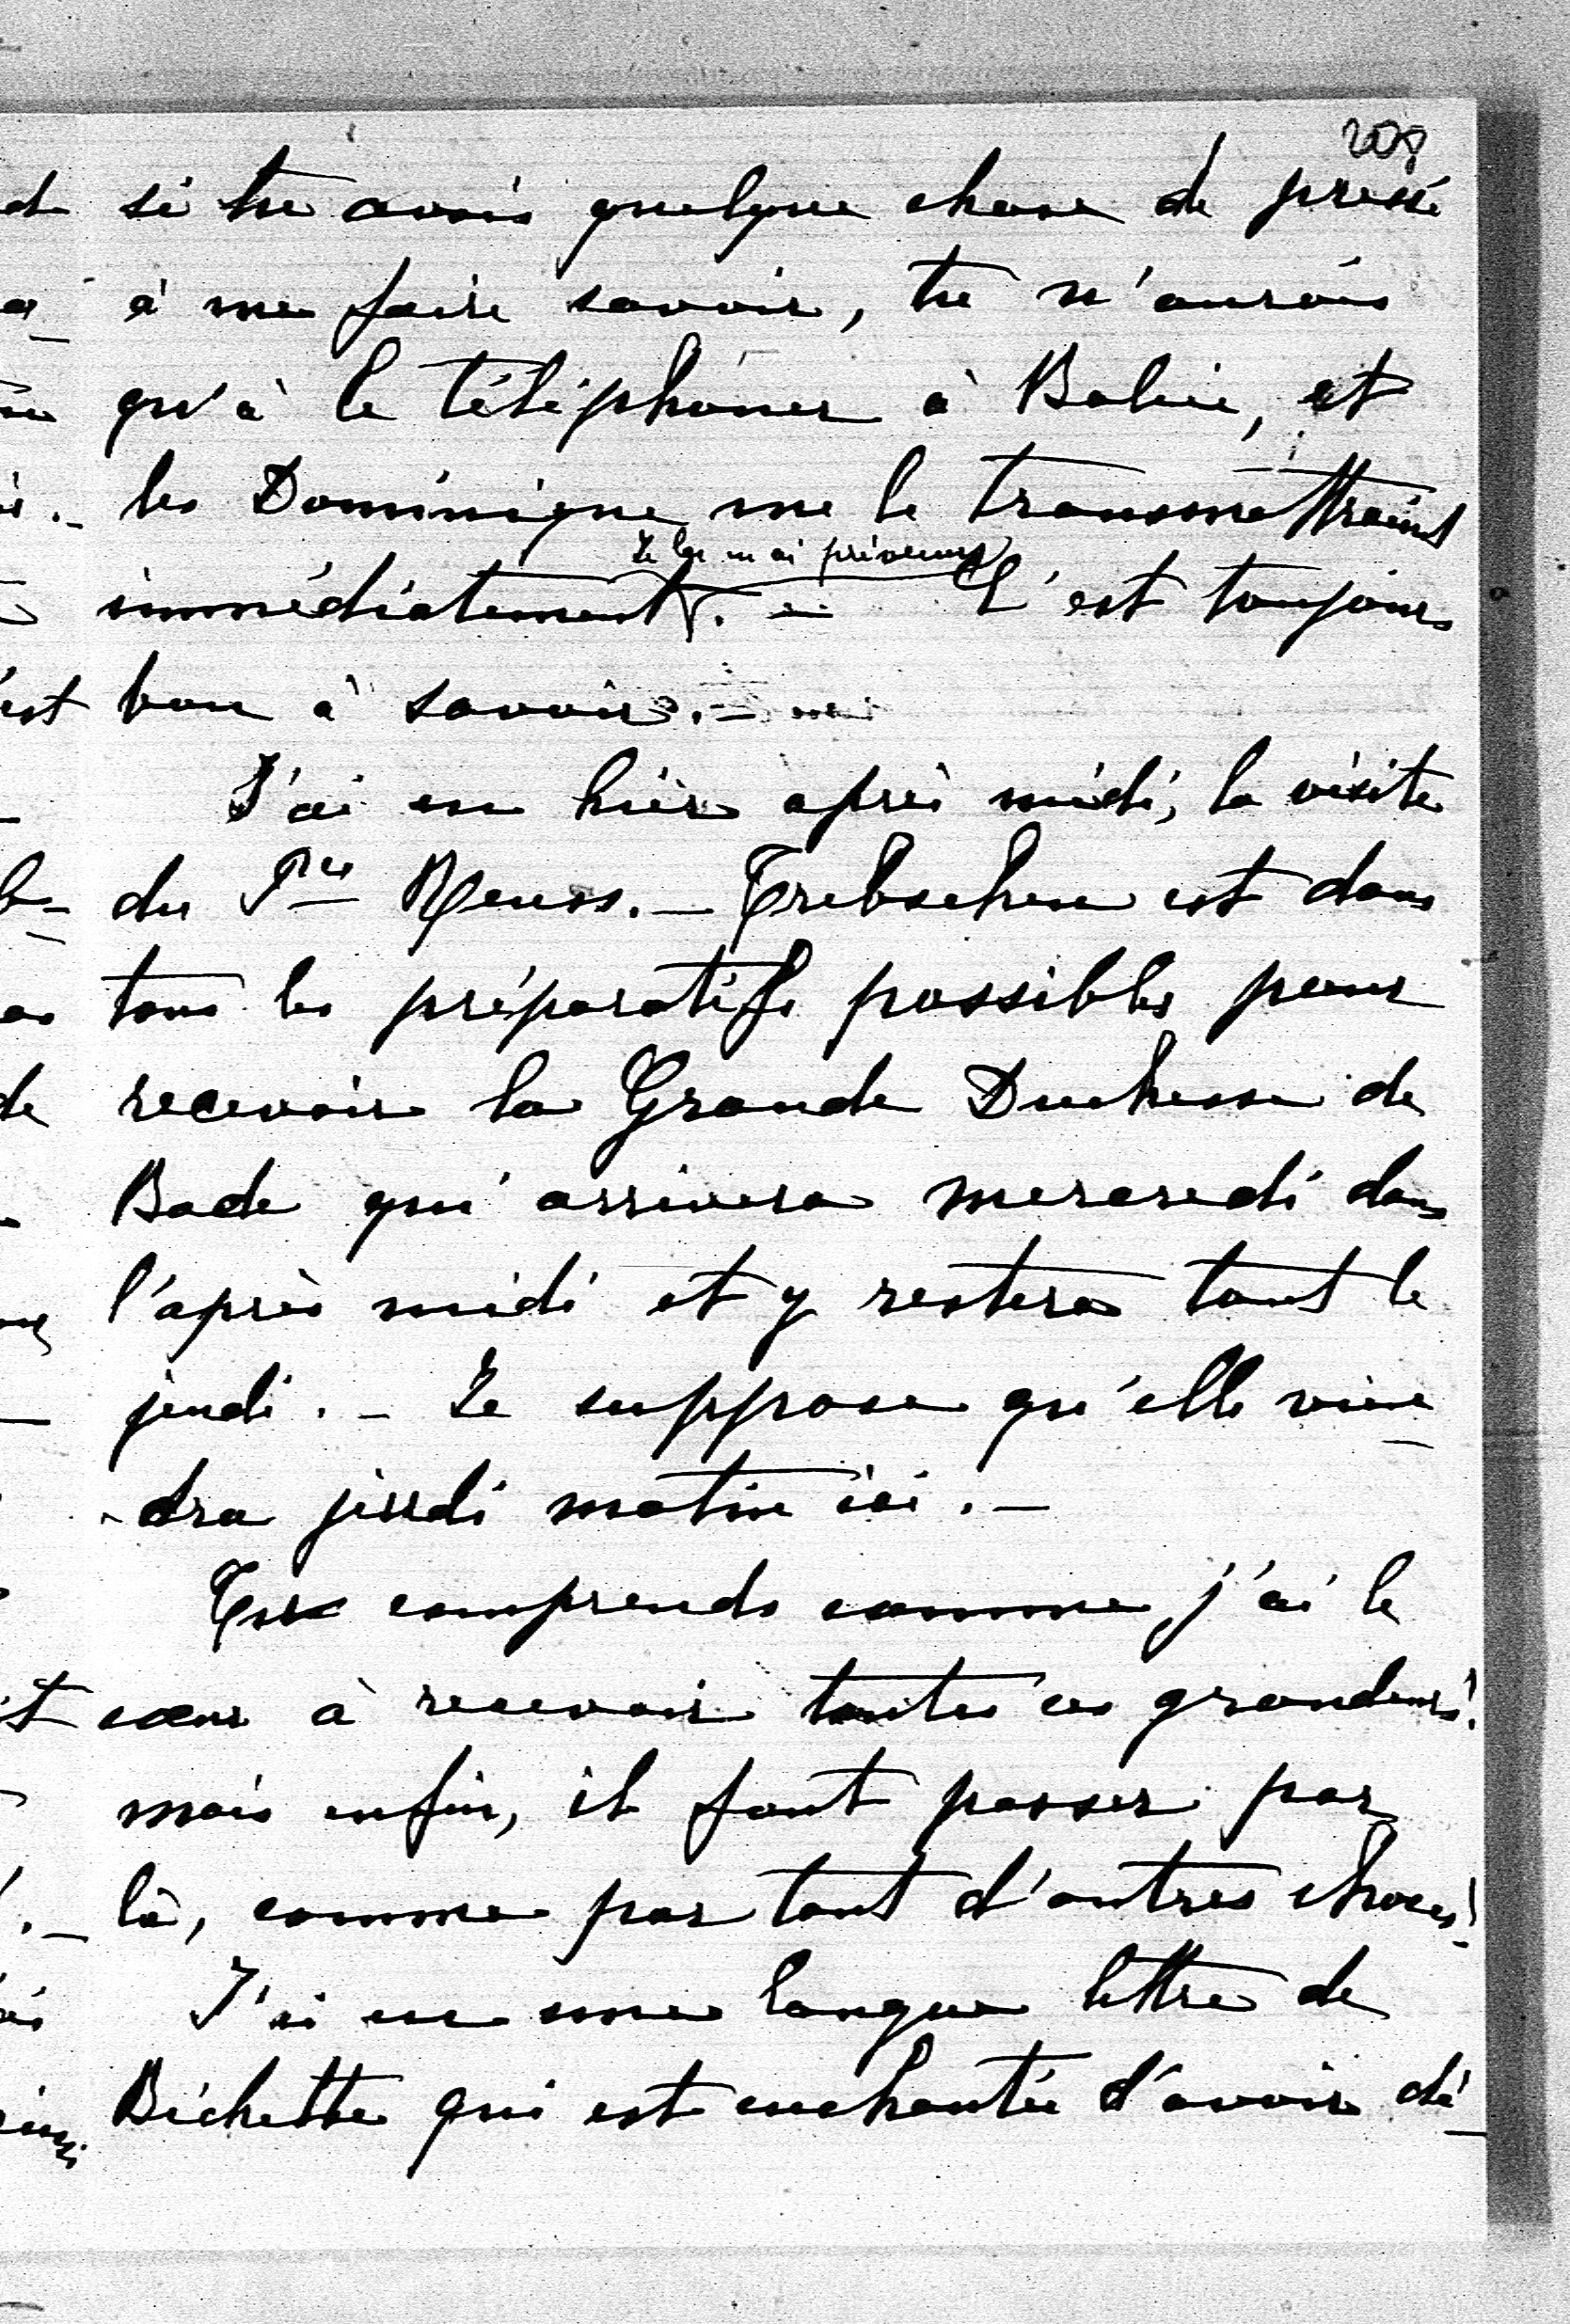 208
si tu avais quelque chose de pressé
à me faire savoir, tu n'aurais
qu'à le téléphoner à Bolivie, et
les Dominique me le transmettraient
Je les en ai prévenus
immédiatement. — C'est toujours
bon à savoir. —
J'ai eu hier après midi, la visite
du Pce Reuss. — Trebschen est dans
tous les préparatifs possibles pour
recevoir la Grande Duchesse de
Bade qui arrivera mercredi dans
l'après midi et y restera tout le
jeudi. — Je suppose qu'elle vien
-dra jeudi matin ici. —
Tu comprends comme j'ai le
cœur à recevoir toutes ces grandeurs!
mais enfin, il faut passer par
là, comme par tant d'autres choses! —
J'ai eu une longue lettre de
Bichette qui est enchantée d'avoir dé-